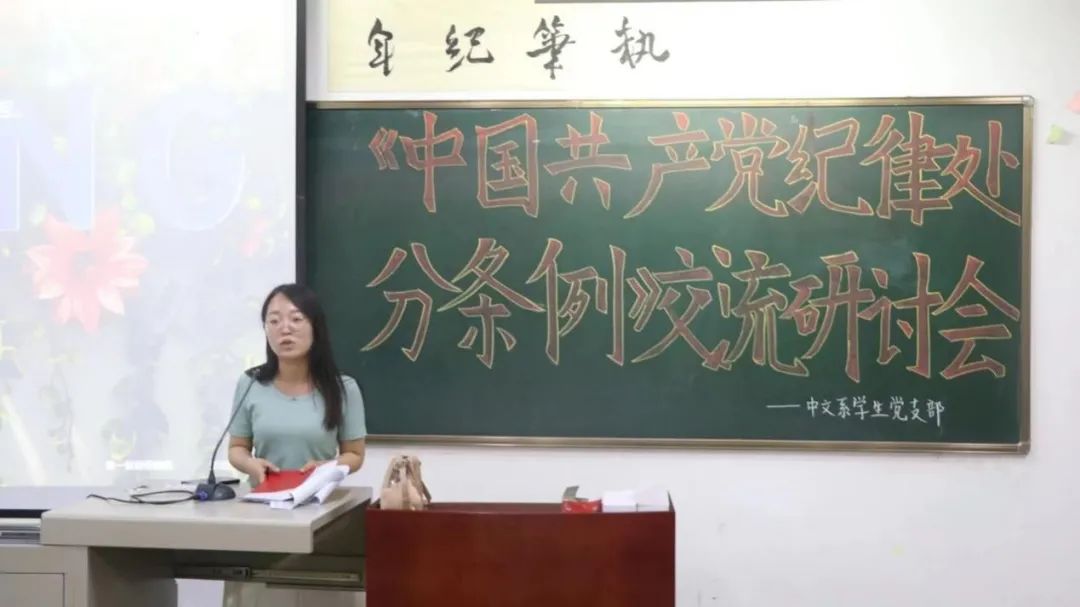 执笔纪年
《中国共产党纪律处
分条例》交流研讨会
——中文系学生党支部
NG